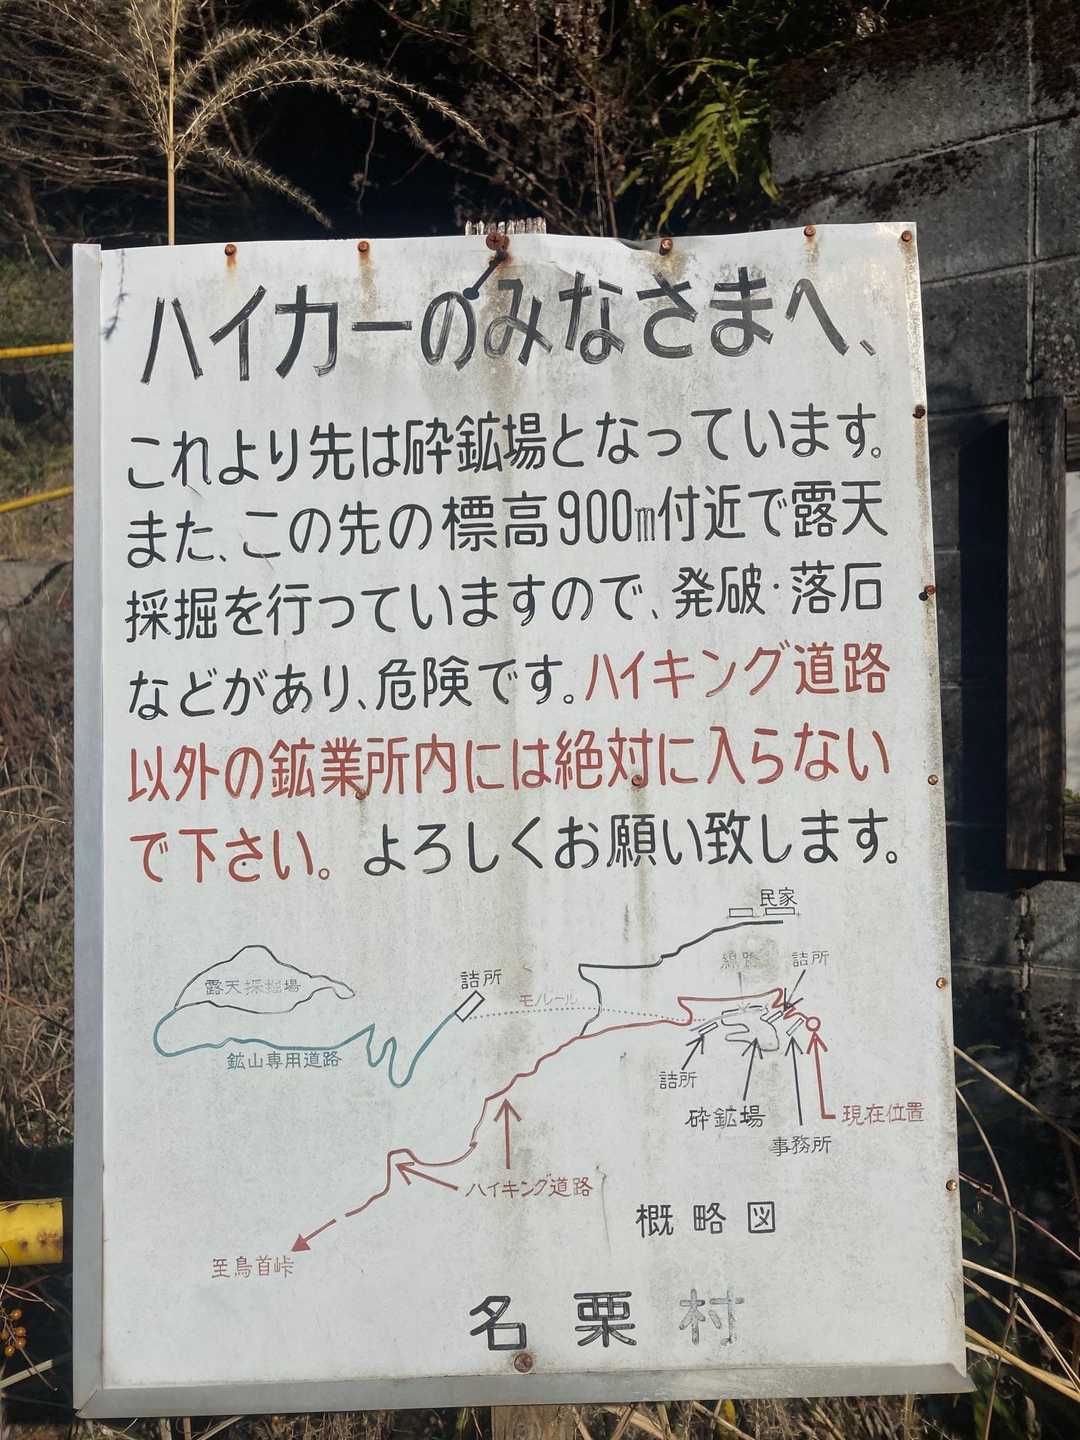 ハイカーのみなさまへ、
これより先は砕鉱場となっています。
また、この先の標高900m付近で露天
採掘を行っていますので、発破・落石
などがあり、危険です。ハイキング道路
以外の鉱業所内には絶対に入らない
で下さい。よろしくお願い致します。
民家
線路
詰所
露天採掘場
詰所
モノレール
鉱山専用道路
詰所
砕鉱場
現在位置
事務所
ハイキング道路
概略図
至鳥首峠
名栗村